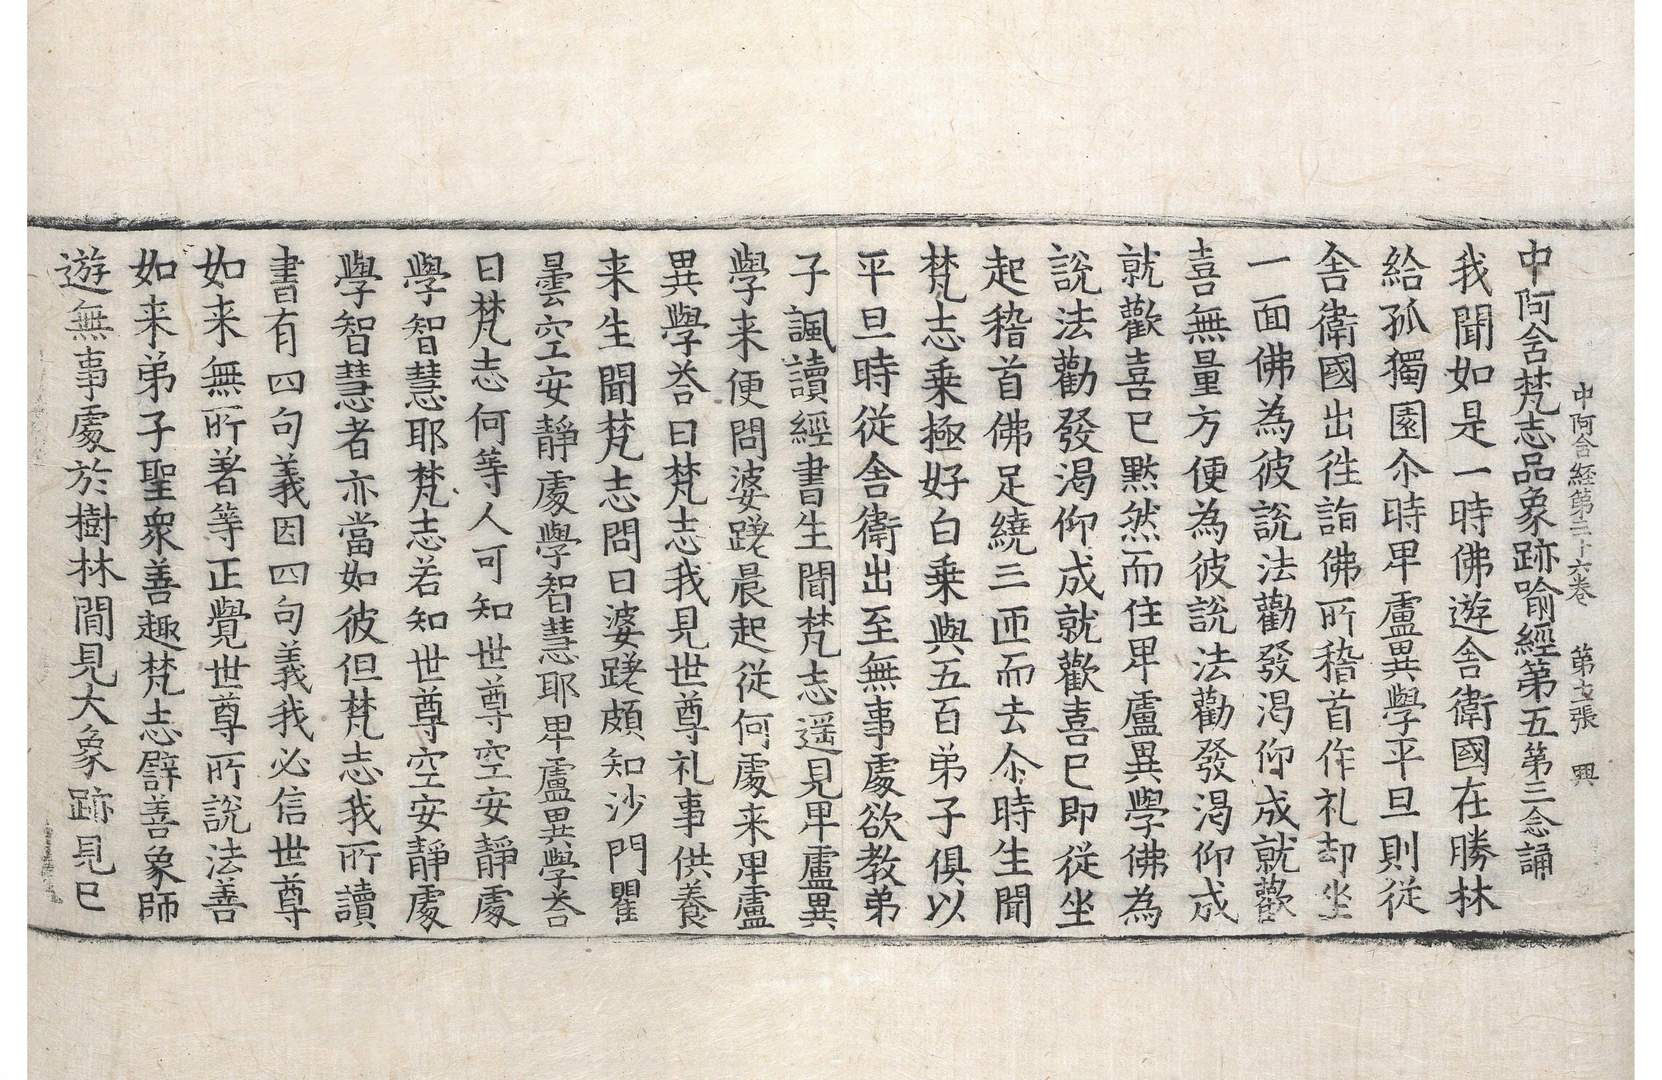 中阿含経第三十六卷 興
中阿含梵志品象跡喻經第五第三念誦
我聞如是一時佛遊舍衛國在勝林
給孤獨園尒時卑盧異學平旦則從
舍衛國出往詣佛所稽首作礼却坐
一面佛為彼說法勸發渴仰成就歡
喜無量方便為彼說法勸發渴仰成
就歡喜已默然而住卑盧異學佛為
說法勸發渴仰成就歡喜已即從坐
起稽首佛足繞三匝而去尒時生聞
梵志乗極好白乗與五百弟子俱以
平旦時從舍衛出至無事處欲教弟
子諷讀經書生聞梵志遥見卑盧異
學来便問婆蹉晨起從何處来卑盧
異學荅曰梵志我見世尊礼事供養
来生聞梵志問曰婆蹉頗知沙門瞿
曇空安靜處學智慧耶卑盧異學荅
曰梵志何等人可知世尊空安靜處
學智慧耶梵志若知世尊空安靜處
學智慧者亦當如彼但梵志我所讀
書有四句義因四句義我必信世尊
如来無所著等正覺世尊所說法善
如来弟子聖衆善趣梵志譬善象師
遊無事處於樹林間見大象跡見已